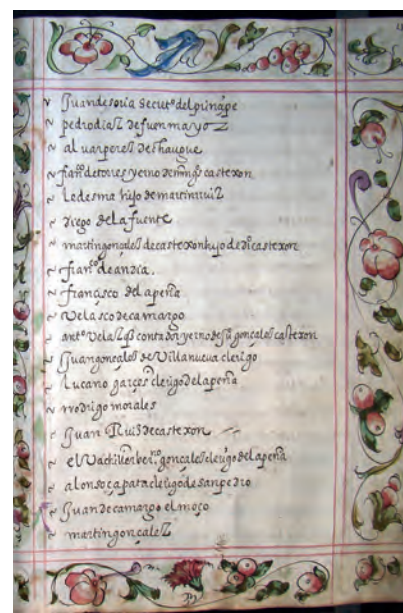 ~ Juan de soria secret° del prinçipe
~ pedro diaZ de fuenmayoZ
~ aluar perez de
~ fran^co de torres yerno de ming° castexon
~ Ledesma hijo de martin ruiZ
~ diego de la fuente
~ martin gonçalez de castexon hijo de di° castexon
~ fran^co de andia.
~ françisco de la peña
~ Velasco de camargo
~ ant° Velazqs contador yerno de Ju° gonçalez castexon
~ Juan gonçalez de Villanueva clerigo
~ Lucano garçes clerigo de la peña
~ rrodrigo morales
~ Juan Ruiz de castexon
~ el Vachiller ber^no gonçalez clerigo de la peña
~ alonso çapata clerigo de san pedro
~ Juan de camargo el moço
~ martin gonçaleZ